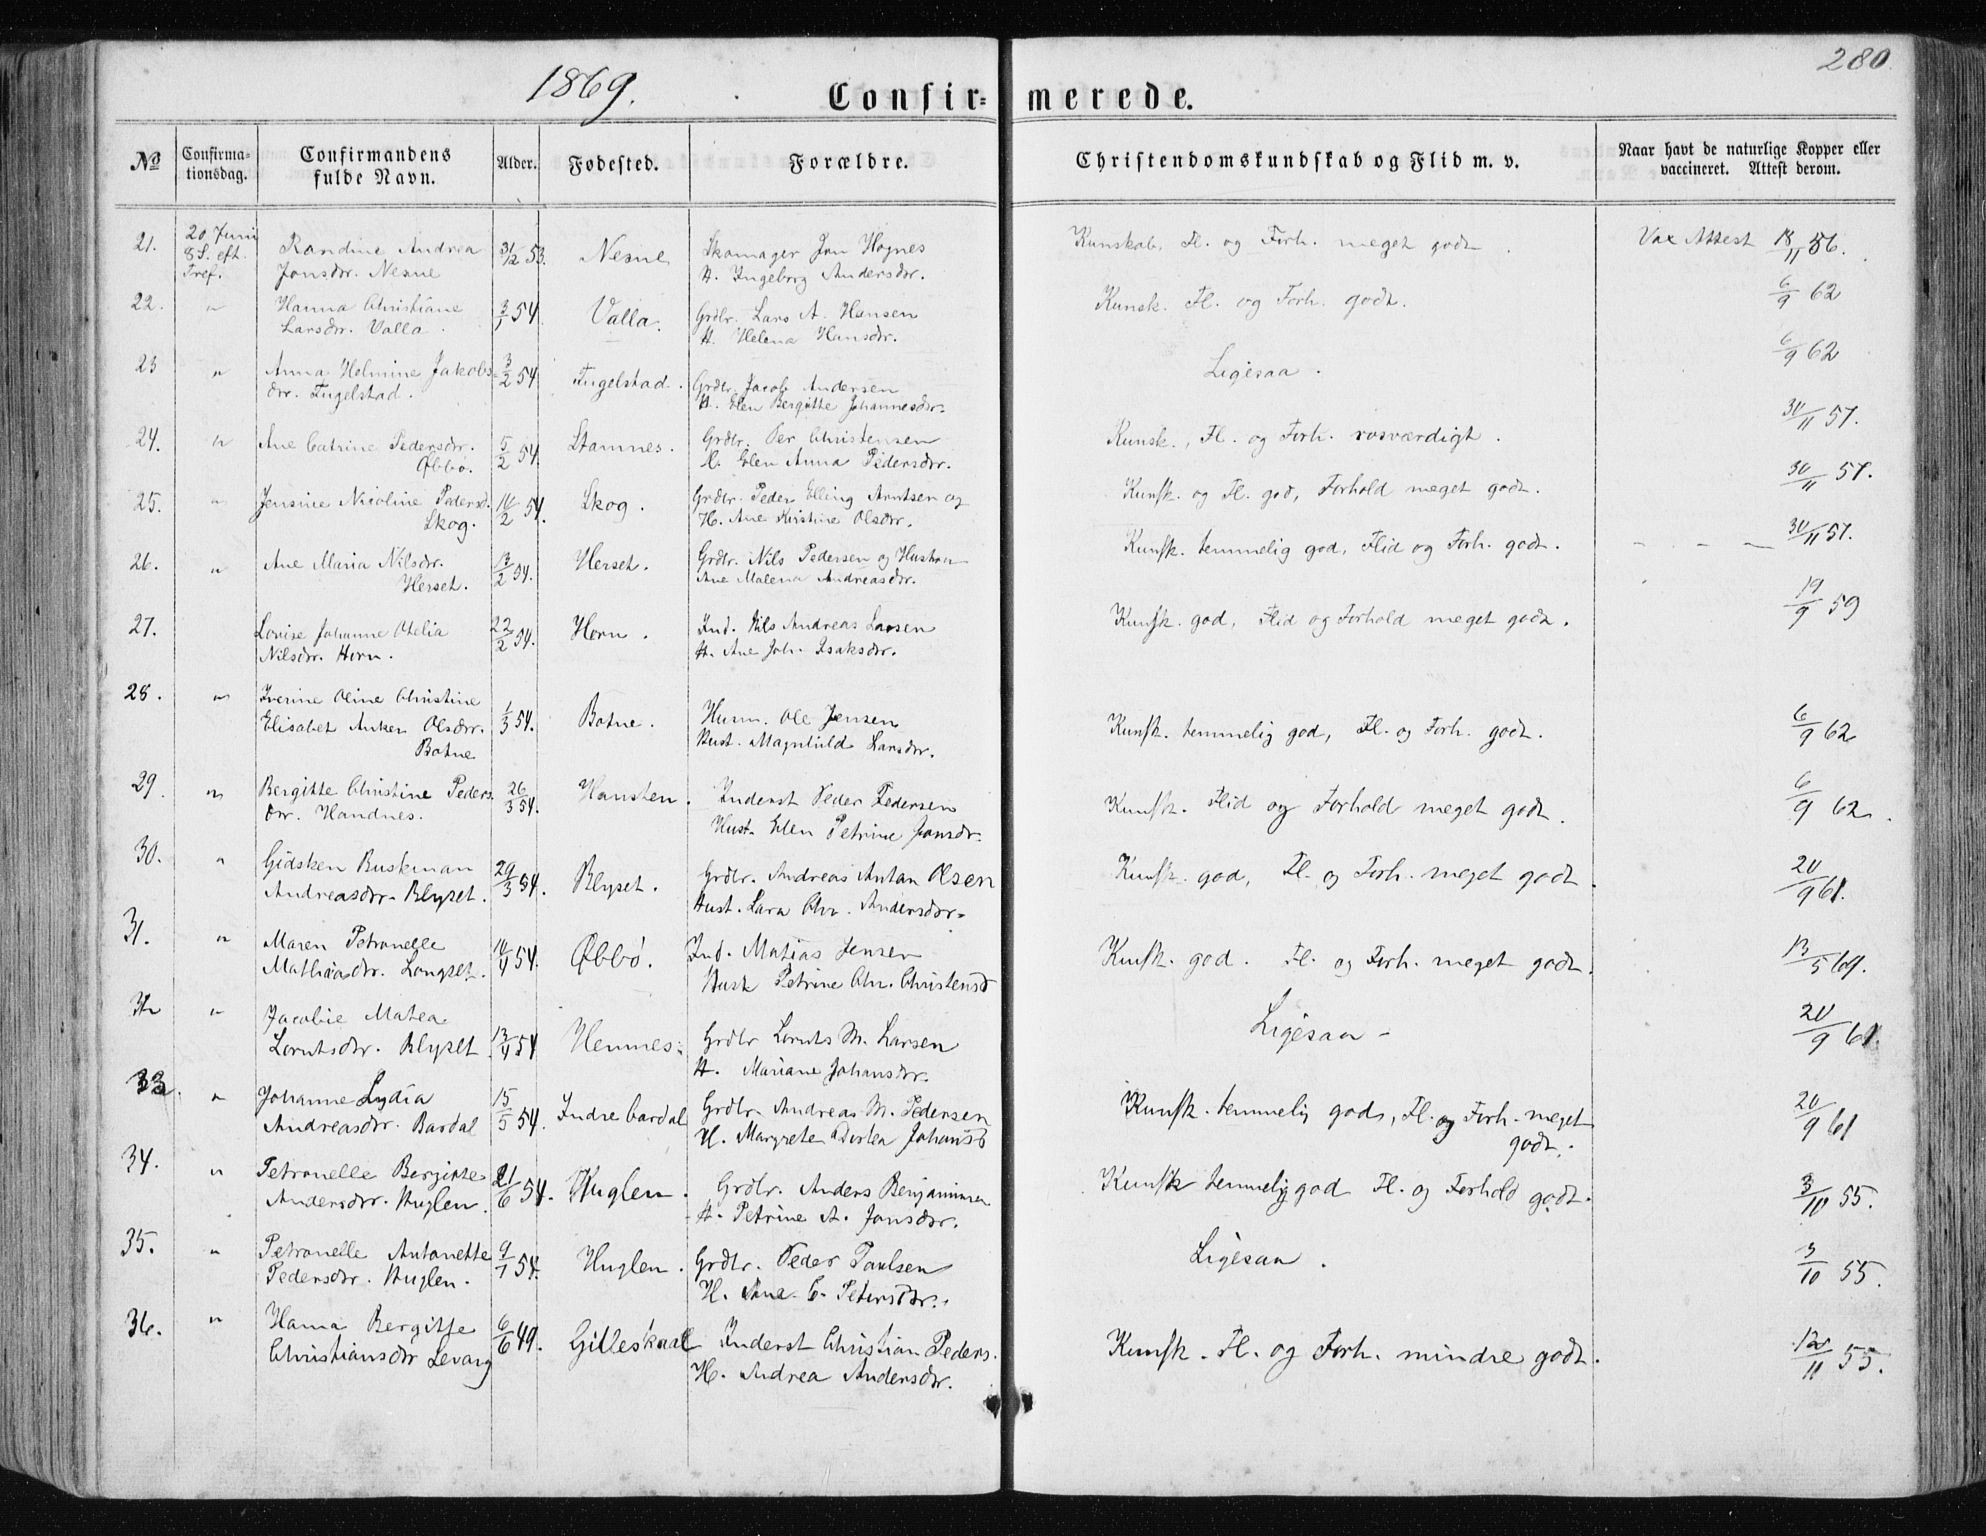 280
1869.
Confir= merede.
No
Confirma-
tionsdag.
Confirmandens
fulde Navn.
Alder.
Fødested.
Forældre.
Christendomskundskab og Flid m. v.
Naar havt de naturlige Kopper eller
vaccineret. Attest derom.
21. 20 Juni Randine Andrea 31/12 53. Nesne Skomager Jon Hognes Kunskab, Fl. og Forh. meget godt. Vax Attest 18/11 56.
8 S. eft. Jonsdr. Nesne H. Ingeborg Andersdr.
Tref.
22. " Hanna Christiane 3/1 54. Valla. Grdbr. Lars A. Hansen Kunsk. Fl. og Forh. godt. 6/9 62
Larsdr. Valla. H. Helena Hansdr.
23 " Anna Helmine Jakobs- 3/2 54. Fugelstad. Grdbr. Jacob Andersen Ligesaa. 6/9 62
dr. Fugelstad. H. Elen Bergitte Johannesdr.
24. " Ane Catrine Pedersdr. 5/2 54. Stamnes. Grdbr. Per Christensen Kunsk., Fl. og Forh. rosværdigt. 30/11 57.
Øbbø. H. Elen Anna Pedersdr.
25. " Jensine Nicoline Pedersd. 10/2 54. Skog. Grdbr. Peder Elling Arntsen og Kunsk. og Fl. god, Forhold meget godt. 30/11 57.
Skog. H. Ane Kirstine Olsdr.
26. " Ane Maria Nilsdr. 13/2 54. Herset. Grdbr. Nils Pedersen og Hustru Kunsk. temmelig god, Flid og Forh. godt. - - - 30/11 57.
Herset. Ane Malena Andreasdr.
27. Lovise Johanne Otelia 22/2 54. Horn. Ind. Nils Andreas Larsen Kunsk. god, Flid og Forhold meget godt. 19/9 59
Nilsdr. Horn. H. Ane Joh. Isaksdr.
28. " Iverine Oline Christine
Elisabet Anker Olsdr. 1/3 54. Botne. Husm. Ole Jensen Kunsk. temmelig god, Fl. og Forh. godt. 6/9 62
Botne Hust. Magnhild Larsdr.
29. " Bergitte Christine Peders- 26/3 54. Hansten. Inderst Peder Pedersen Kunsk. Flid og Forhold meget godt. 6/9 62.
dr. Handnes. Hust. Elen Petrine Jonsdr.
30. " Gidsken Buskman 29/3 54. Blyset. Grdbr. Andreas Antan Olsen Kunsk. god, Fl. og Forh. meget godt. 20/9 61.
Andreasdr. Blyset. Hust. Lara Chr. Andersdr.
31. " Maren Petronelle 10/4 54. Øbbø. Ind. Matias Jensen Kunsk. god. Fl. og Forh. meget godt. 13/5 69.
Mathiasdr. Langset. Hust Petrine Chr. Christensd
32 " Jacobie Matea
Lorntsdr. Blyset. 13/4 54 Hemnes. Grdbr Lornts M. Larsen Ligesaa - 20/9 61.
H. Mariane Johansdr.
33. " Johanne Lydia 15/5 54. Indre bardal Grdbr. Andreas M. Pedersen Kunsk. temmelig god, Fl. og Forh. meget 20/9 61
Andreasdr. Bardal H. Margrete Dortea Johansd godt.
34. " Petronelle Bergitte 21/6 54. Huglen. Grdbr. Anders Benjaminsen Kunsk temmelig god Fl. og Forhold godt. 3/10 55.
Andersdr. Huglen. H. Petrine A. Jonsdr.
35. " Petronelle Antonette 9/7 54. Huglen. Grdbr. Peder Paulsen Ligesaa. 3/10 55.
Pedersdr. Huglen. H. Ane C. Petersdr.
36. " Hanna Bergitte 6/6 49. Gilleskaal Inderst Christian Peders. Kunsk. Fl. og Forh. mindre godt. 10/11 55.
Christiansdr Levang H. Andrea Andersdr.